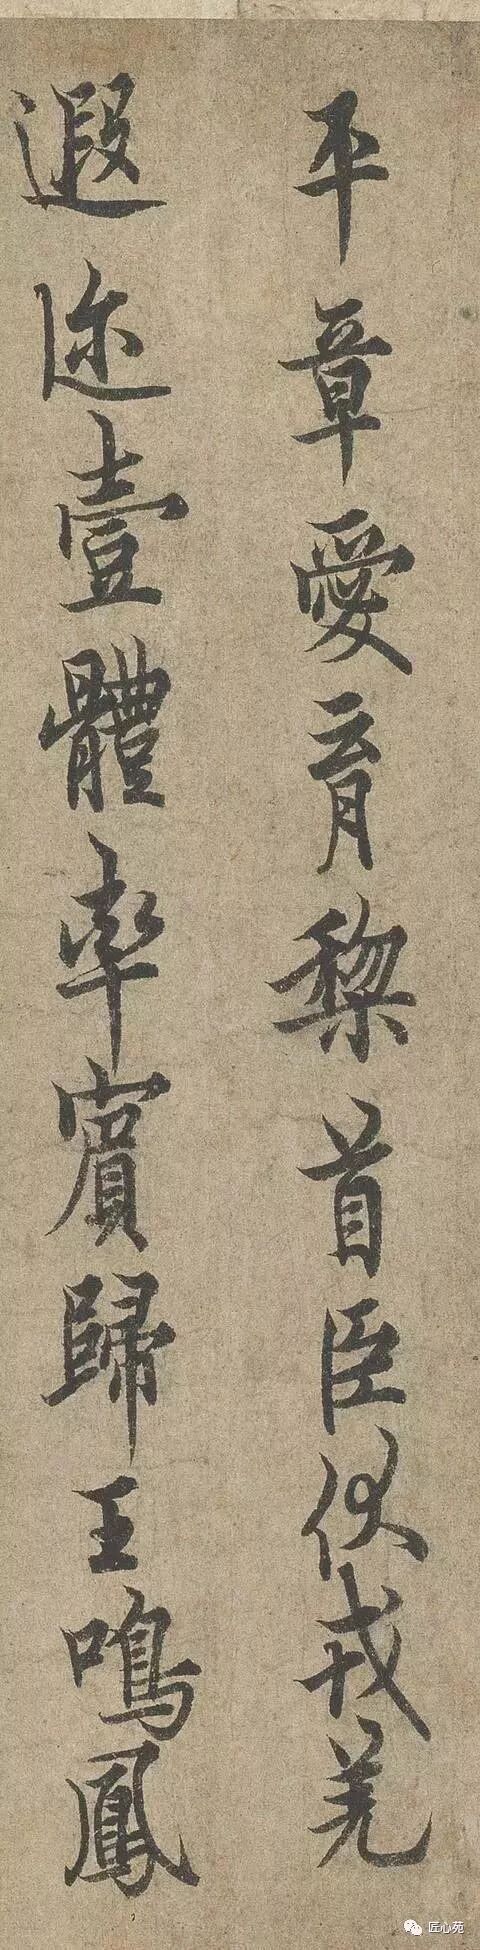 平章愛育黎首臣伏戎羌
遐迩壹體率賓歸王鳴鳳
匠心苑